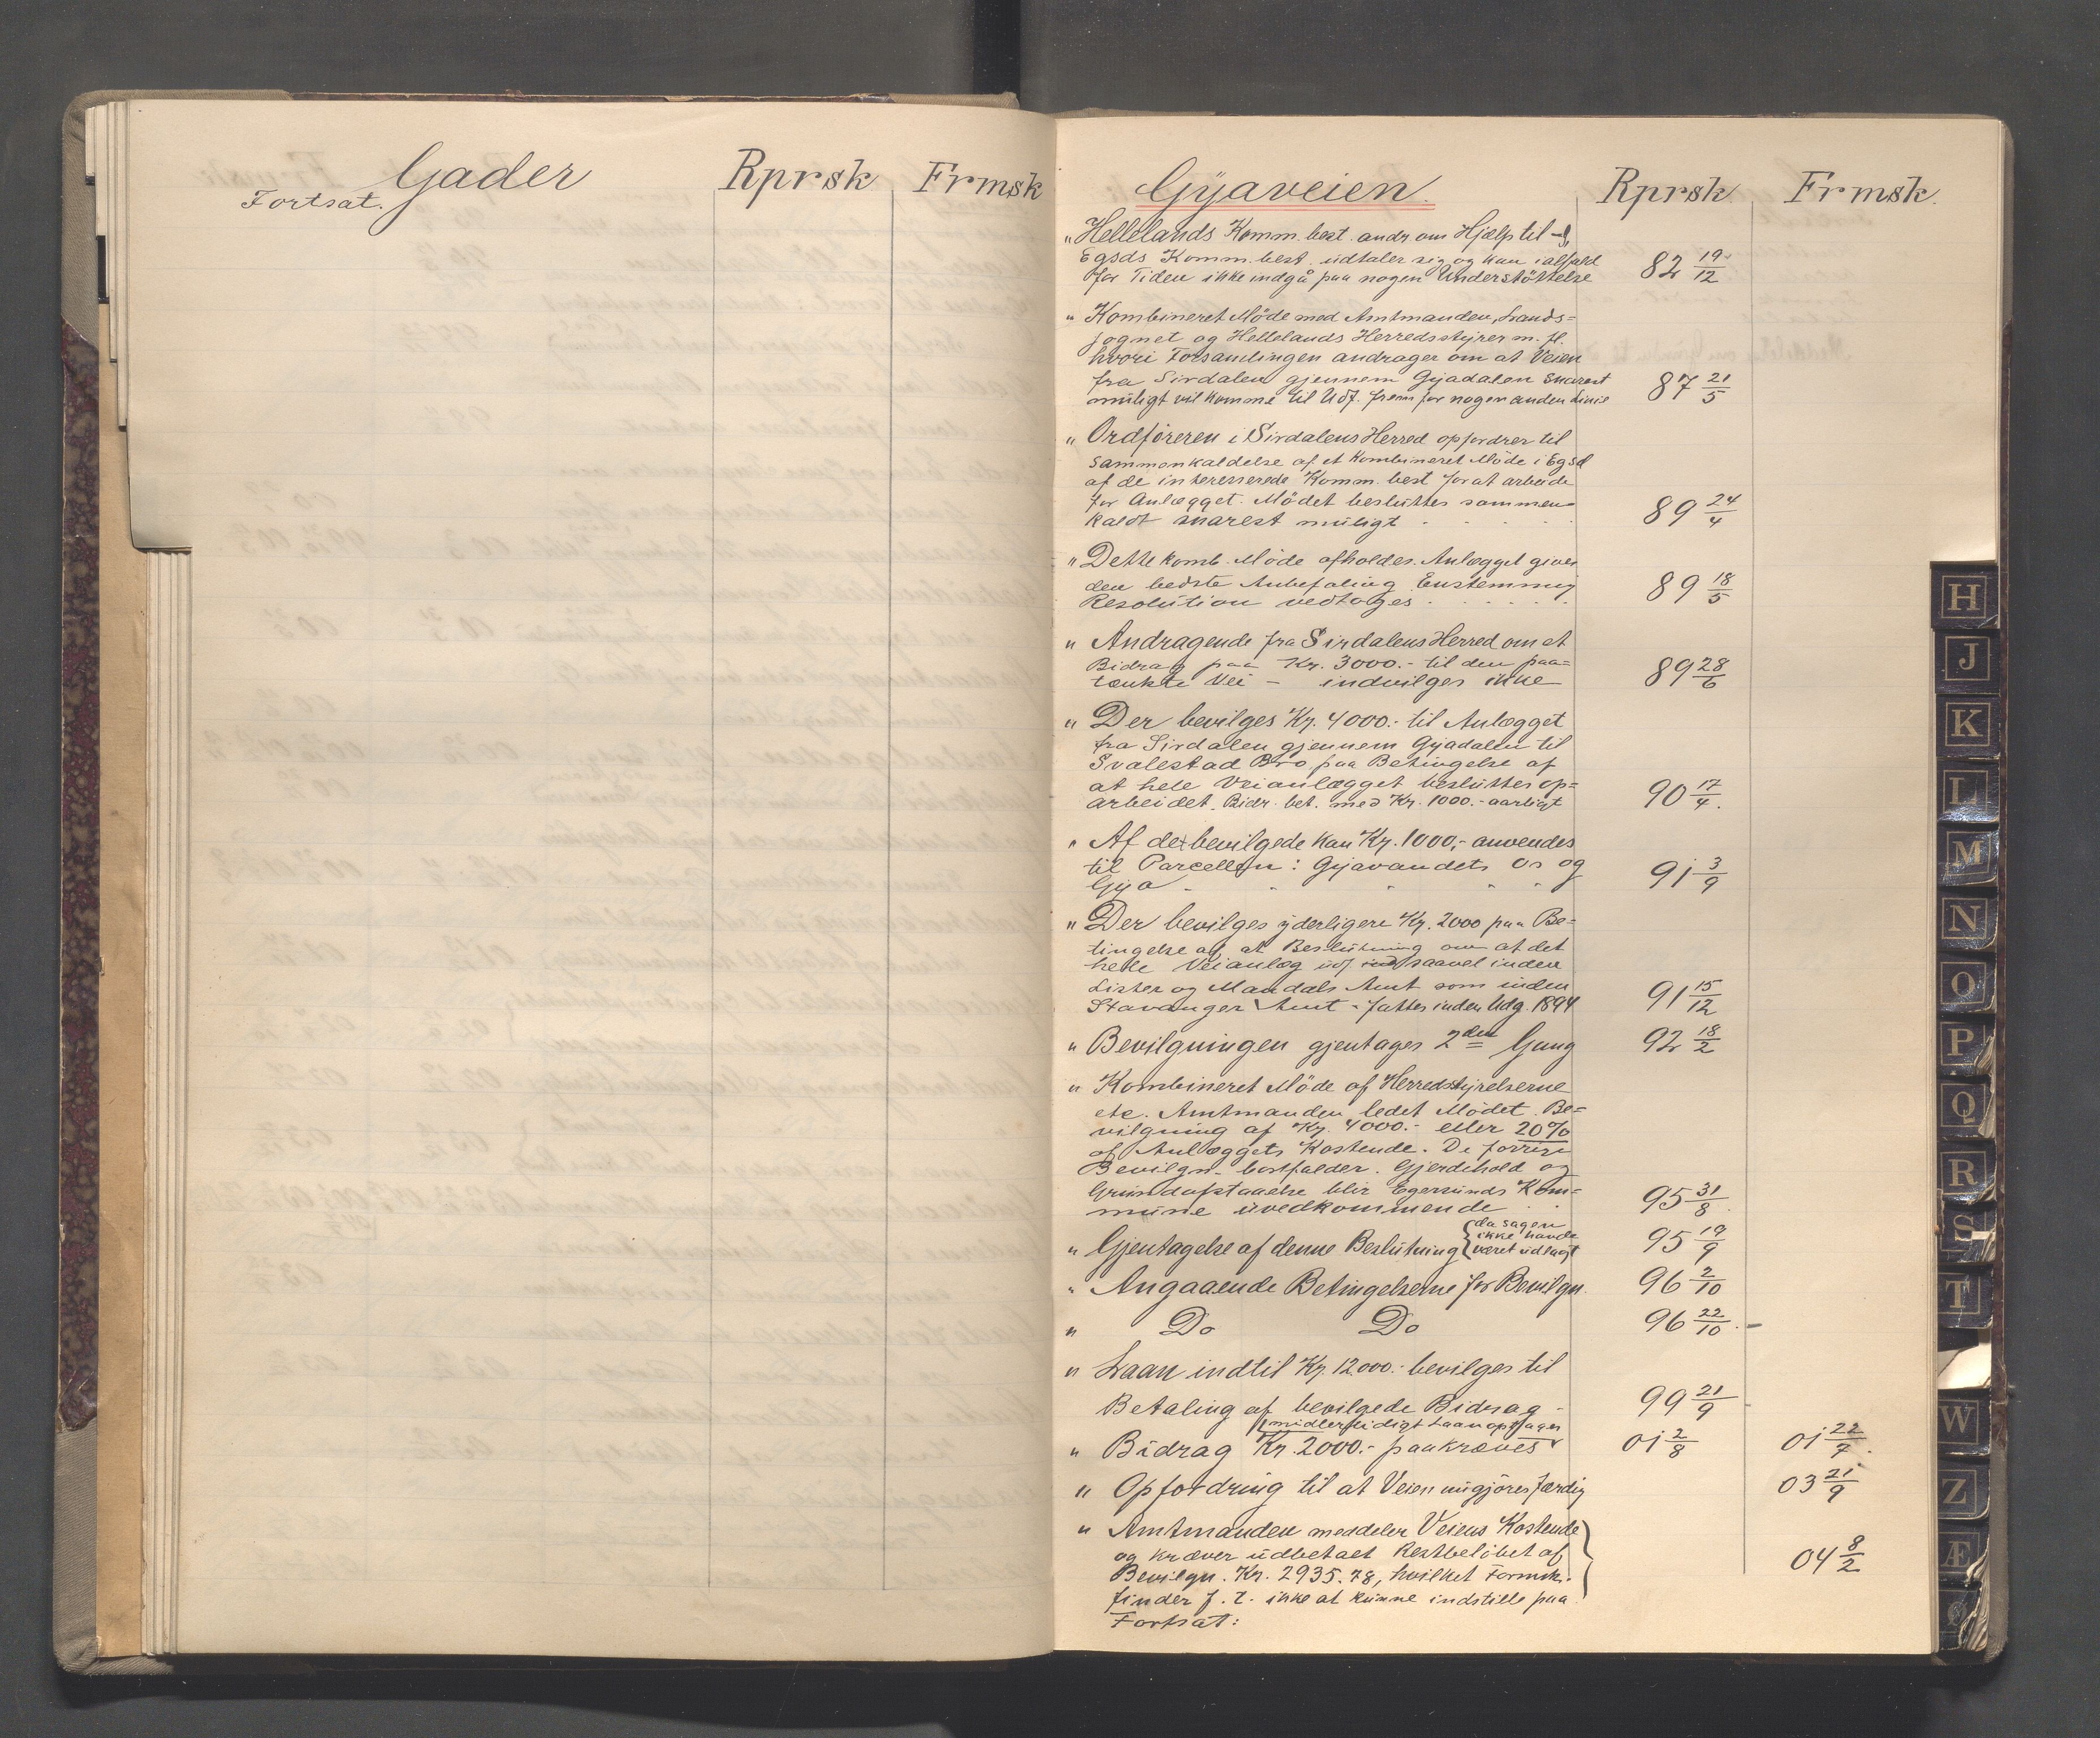 Gader
Fortsat.
Rprsk
Frmsk
Gyaveien.
Rprsk
Frmsk.
" Hellelands Komm. best. andr. om Hjælp til -
Egsds Komm. best. udtaler sig og kan ialfald
for Tiden ikke indgå paa nogen Understöttelse 82 19/12
" Kombineret Möde med Amtmanden, Lands=
sognet og Hellelands Herredsstyrer m. fl.
hvori Forsamlingen andrager om at Veien
fra Sirdalen gjennem Gyadalen snarest
muligt vil komme til Udf. frem for nogen anden Linie 87 21/5
" Ordföreren i Sirdalens Herred opfordrer til
sammenkaldelse af et Kombineret Möde i Egsd
af de interesserede Komm. best for at arbeide
for Anlægget. Mödet besluttes sammen
kaldt snarest muligt 89 24/4
" Dette komb. Möde afholdes. Anlægget gives
den bedste Anbefaling Enstemmig
Resolution vedtoges 89 18/5
" Andragende fra Sirdalens Herred om et
Bidrag paa Kr. 3000.- til den paa=
tænkte Vei - indvilges ikke 89 28/6
" Der bevilges Kr. 4000.- til Anlægget
fra Sirdalen gjennem Gyadalen til
Svalestad Bro paa Betingelse af
at hele Veianlægget besluttes op=
arbeidet. Bidr. bet. med Kr. 1000.- aarligt 90 17/4.
" Af det bevilgede kan Kr. 1000,- anvendes
til Parcellen: Gyavandets Os og
Gya 91 3/9
" Der bevilges yderligere Kr. 2000 paa Be=
tingelse af, at Beslutning om at det
hele Veianlæg udf saavel inden
Lister og Mandals Amt som inden
Stavanger Amt - fattes inden Udg. 1894 91 15/12
" Bevilgningen gjentages 2den Gang 92 18/2
" Kombineret Möde af Herredsstyrelserne
etc. Amtmanden ledet Mödet. Be=
vilgning af Kr. 4000.- eller 20%
af Anlæggets Kostende. De forrige
Bevilgn. bortfalder. Gjerdehold og
Grundafstaaelse blir Egersunds Kom=
mune uvedkommende 95 31/8.
" Gjentagelse af denne Beslutning { da sagen
ikke havde
været udlagt 95 19/9
" Angaaende Betingelserne for Bevilgn. 96 2/10
" Do Do 96 22/10.-
" Laan indtil Kr. 12000.- bevilges til
Betaling af bevilgede Bidrag - 99 21/9
midlertidigt Laan optages
" Bidrag Kr. 2000.- paakræves 01 2/8 01 22/7.
" Opfordring til at Veien migjöres færdig 03 21/9
" Amtmanden meddeler Veiens Kostende
og kræver udbetalt Restbelöbet af
Bevilgn. Kr. 2935.78, hvilket Formsk. 04 8/2
finder f. T. ikke at kunne indstille paa.
Fortsat:
H
J
K
L
M
N
O
P
Q
R
S
T
W
Z
Æ